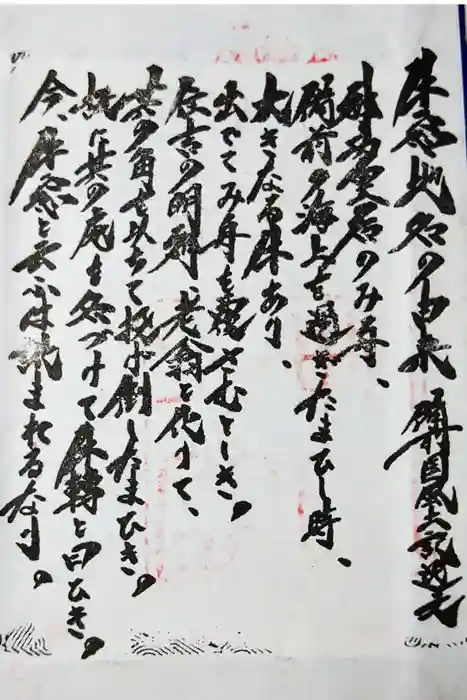 牛窓地名の由来 備前国風土記逸文
神功皇后のみ舟、
備前の海上を過ぎたまひし時、
大きなる牛あり、
出でてみ舟を覆さむとしき。
住吉の明神、老翁と化りて、
其の角を以ちて投げ倒したまひき。
故に其の処を名づけて牛轉と曰ひき。
今、牛窓と云ふは訛まれるなり。